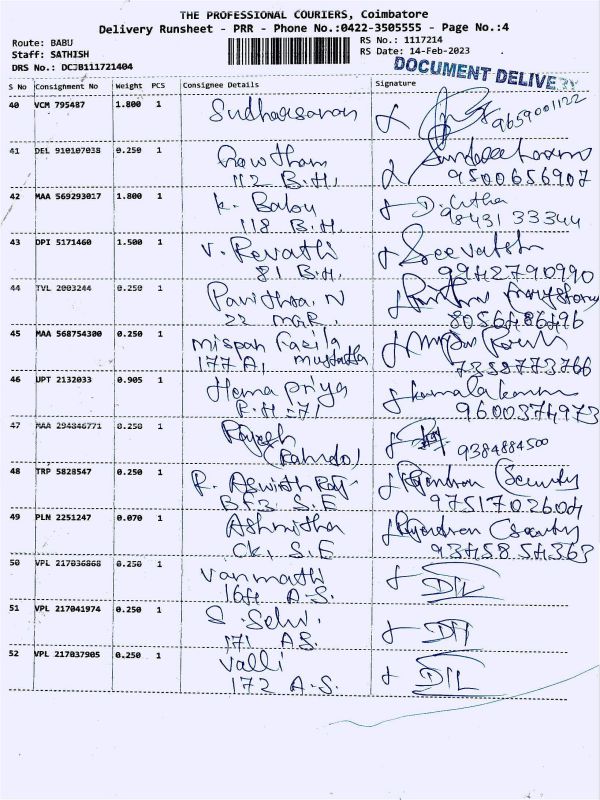 THE PROFESSIONAL COURIERS, Coimbatore
Delivery Runsheet - PRR - Phone No.:0422-3505555 - Page No.:4
Route: BABU
RS No.: 1117214
Staff: SATHISH
RS Date: 14-Feb-2023
DRS No.: DCJB111721404
DOCUMENT DELIVERY
S No Consignment No Weight PCS Consignee Details Signature
40 VCM 795487 1.800 1 Sudharsanan
9659001122
41 DEL 910107038 0.250 1 Gowtham
112 B.H. 9500656907
42 MAA 569293017 1.800 1 K. Balou D. Litha
118 B.H. 98431 33344
43 DPI 5171460 1.500 1 V. Revathi Sreevatsh
81 B.H. 9942790990
44 TVL 2003244 0.250 1 Pavithra. N
22 MGR. 8056486496
45 MAA 568754300 0.250 1 Mispah Fazila
177 A1 Mustafa 7358773766
46 UPT 2132033 0.905 1 Hema Priya
R.H-71 9600374973
47 MAA 294846771 0.250 1 Rajesh
9384884500
48 TRP 5828547 0.250 1 R. Aswinth Raj Rajendran (Security
BF3 S.E 9751702604
49 PLN 2251247 0.070 1 Ashmitha Rajendran (Security
CK, S.E 9345854363
50 VPL 217036868 0.250 1 Vanmathi DIL
164 A.S.
51 VPL 217041974 0.250 1 S. Selvi. DIL
171 AS.
52 VPL 217037905 0.250 1 Valli DIL
172 A.S.